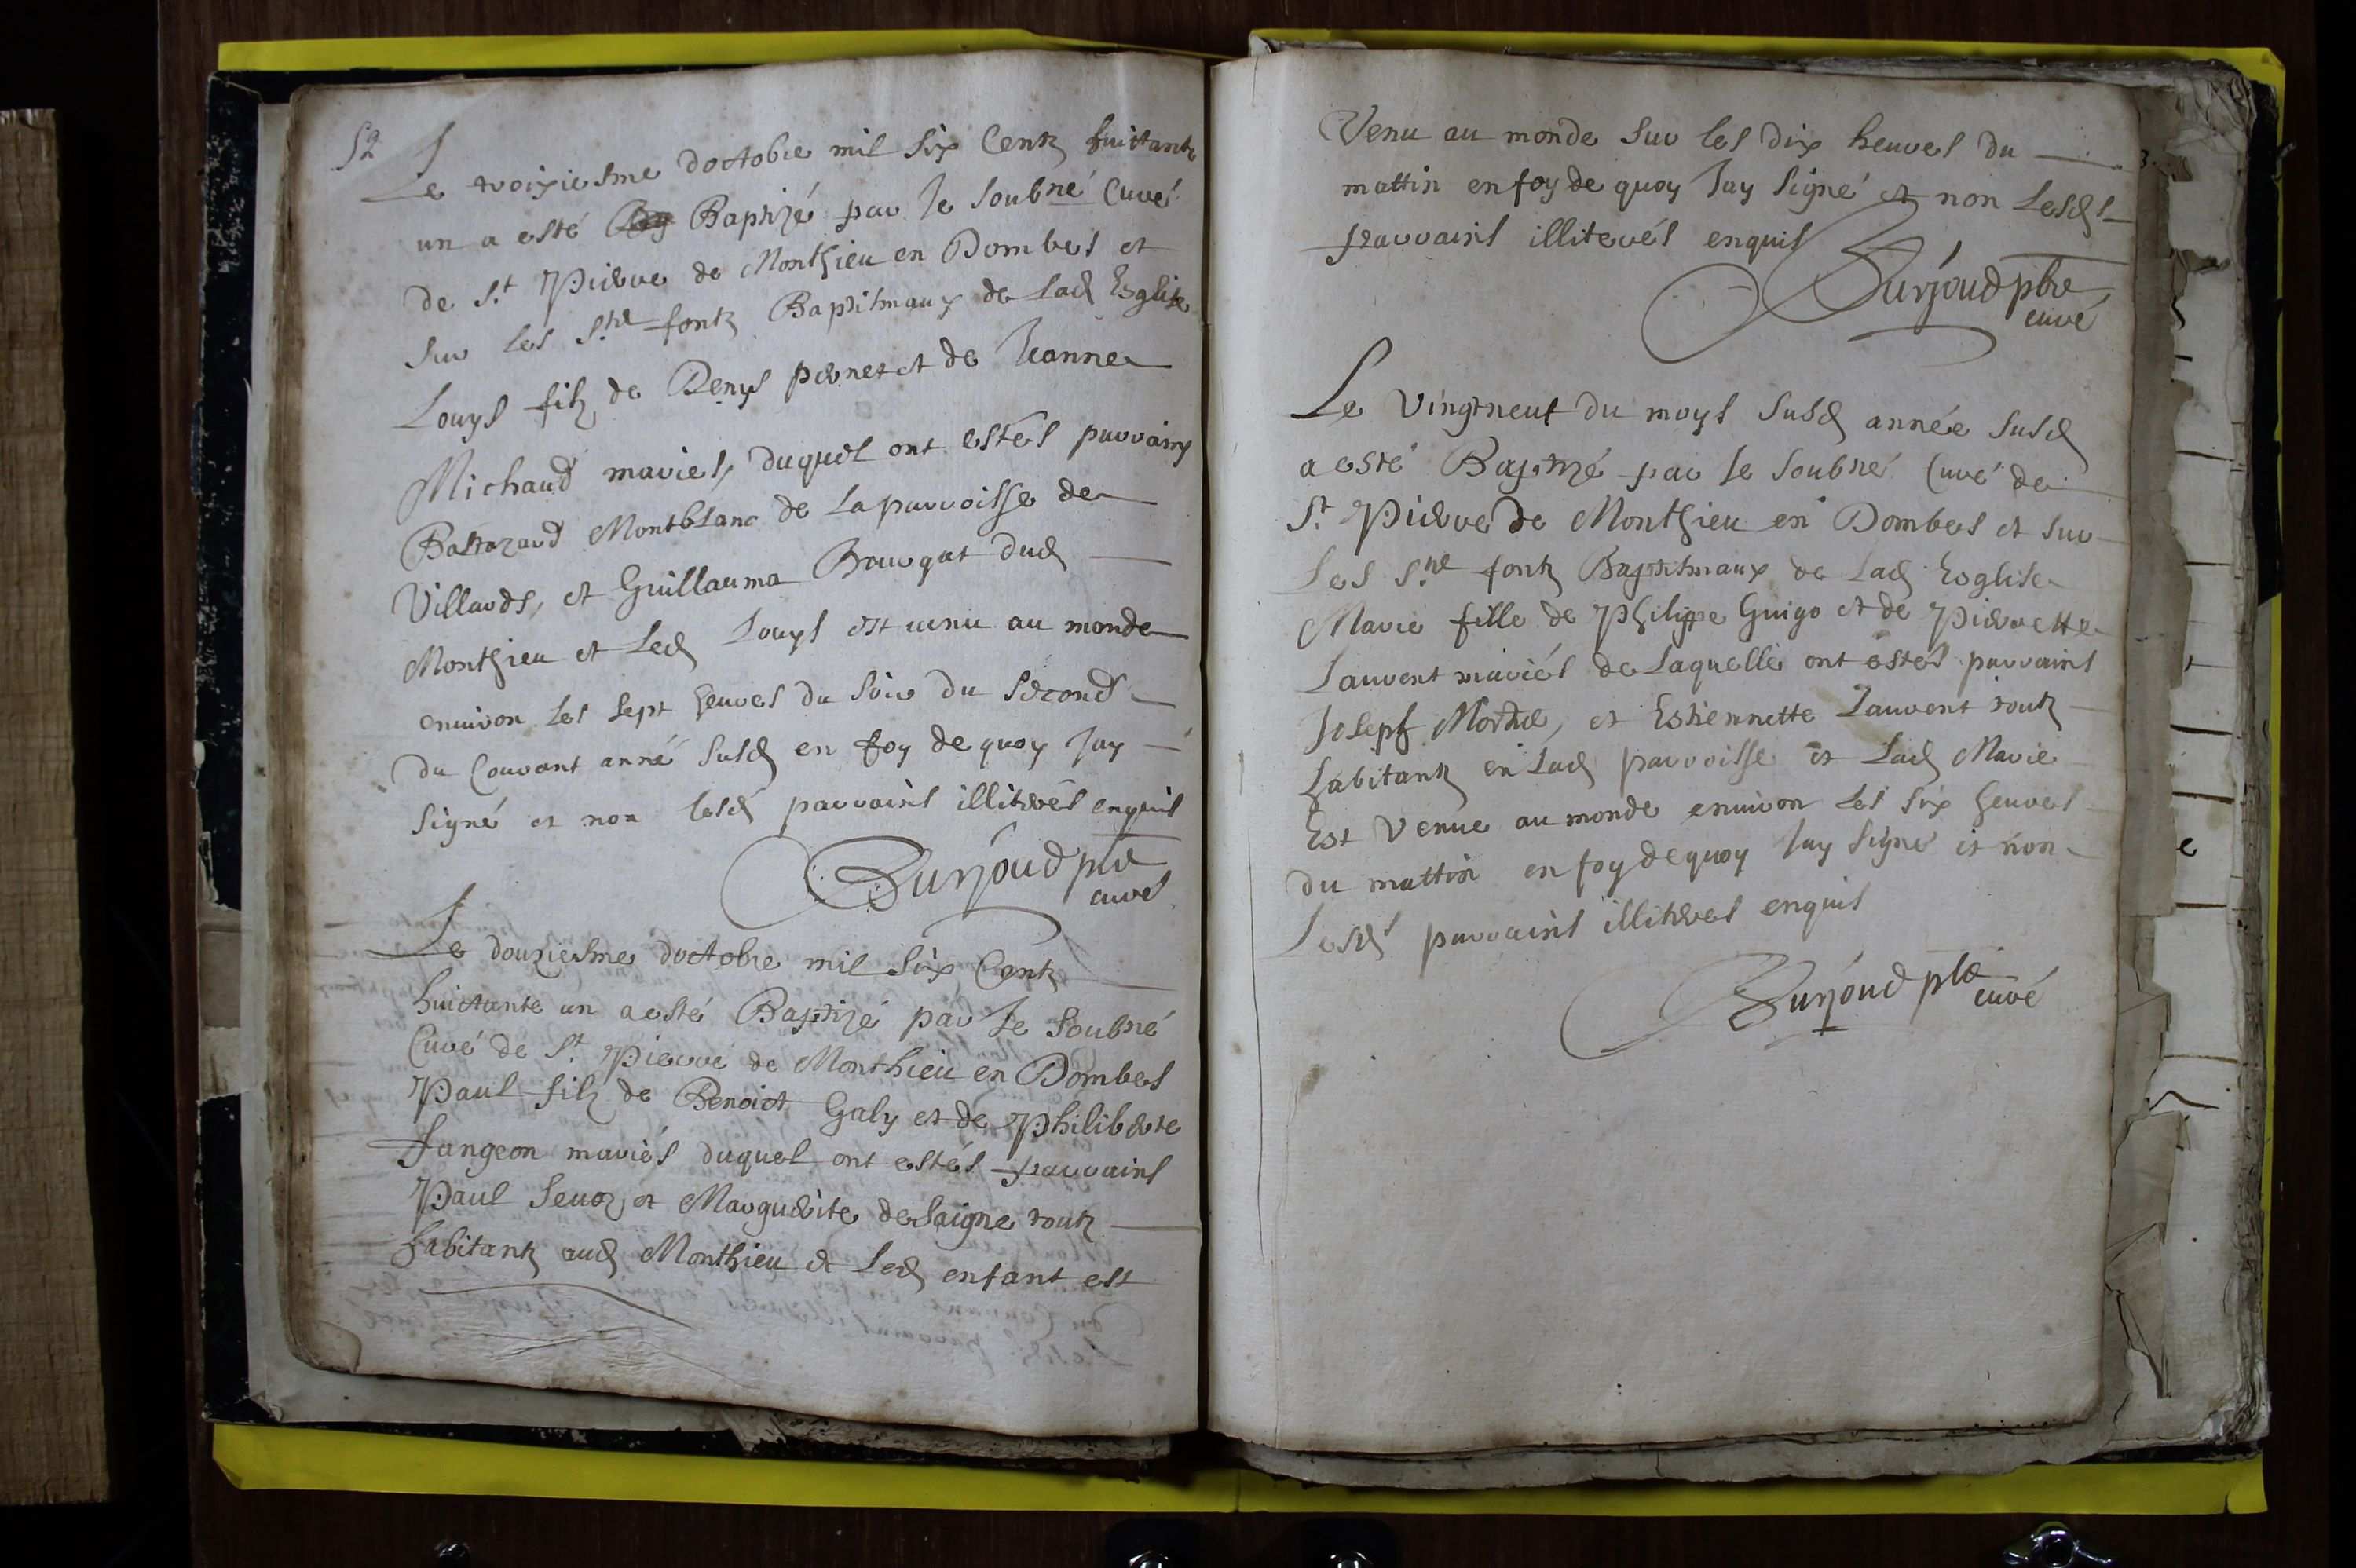 52
Le troixiesme doctobre mil six Centz huittante
un a esté Baptizé par Je soubné Curé
de St Pierre de Monthieu en Dombes et
sur les Stes fontz Baptismaux de Lad Esglise
Louys filz de Denys pernet et de Jeanne
Michaud mariés, duquel ont estés parrains
Baltazard Montblanc de La parroisse de
Villards, et Guillauma Bourgat dud
Monthieu et Led Louys est venu au monde
environ les sept heures du soir du second
du Courant anné susd en foy de quoy Jay
signé et non lesd parrains illiterés enquis
Surjoud pbre
curé
Le douziesme doctobre mil six Centz
huictante un a esté Baptizé par Je soubné
Curé de St Pierre de Monthieu en Dombes
Paul filz de Benoict Galy et de Philiberte
fangeon mariés duquel ont estés parrains
Paul et Marguerite de Saigne toutz
habitantz aud Monthieu et Led enfant est
Venu au monde sur les dix heures du
mattin en foy de quoy Jay signé et non Lesds
parrains illiterés enquis
Surjoud pbre
curé
Le vingtneuf du moys susd année susd
a esté Baptizé par Je soubné Curé de
St Pierre de Monthieu en Dombes et sur
Les Stes fontz Baptismaux de Lad Esglise
Marie fille de Philippe Guigo et de Pierrette
Laurent mariés de Laquelle ont estés parrains
Joseph et Estiennette Laurent toutz
habitantz en Lad parroisse et Lad Marie
Est venue au monde environ Les six heures
du mattin en foy de quoy Jay signé et non
Lesds parrains illiterés enquis
Surjoud pbre
curé